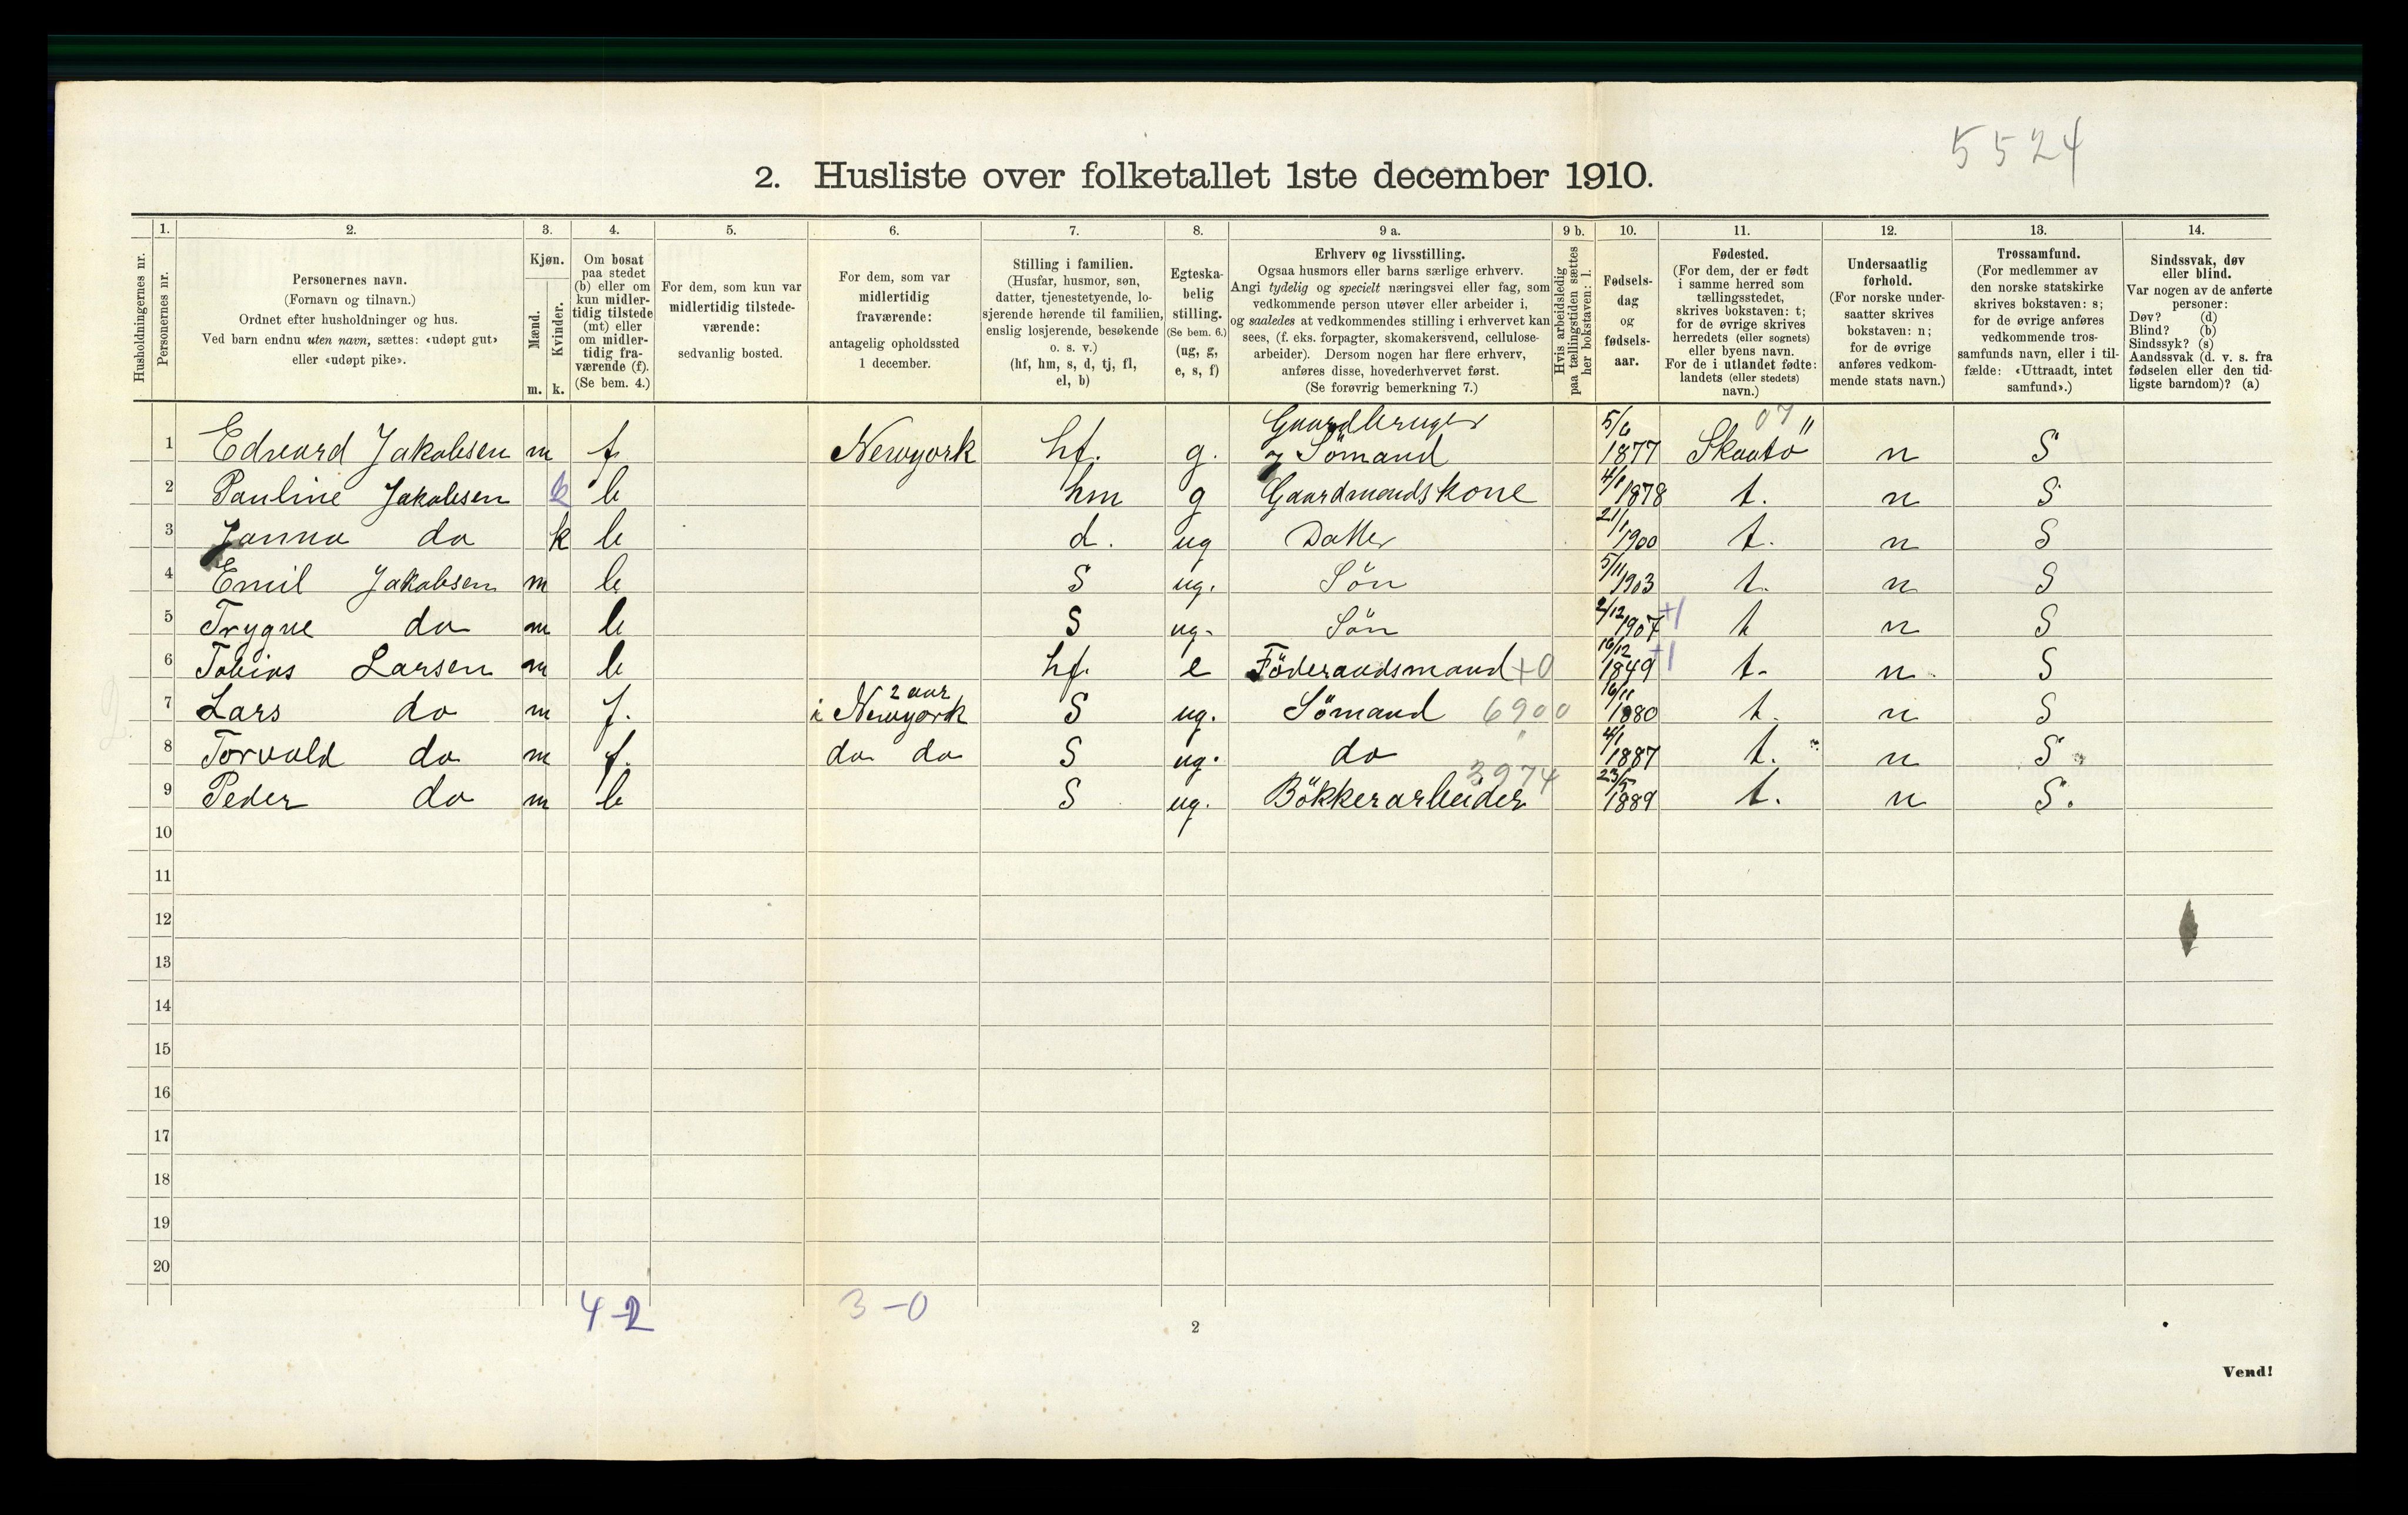 5524
2. Husliste over folketallet 1ste december 1910.
Husholdningernes nr.
1.
Personernes nr.
2.
Personernes navn.
(Fornavn og tilnavn.)
Ordnet efter husholdninger og hus.
Ved barn endnu uten navn, sættes: «udøpt gut»
eller «udøpt pike».
3.
Kjøn.
Mænd.
m.
Kvinder.
k.
4.
Om bosat
paa stedet
(b) eller om
kun midler-
tidig tilstede
(mt) eller
om midler-
tidig fra-
værende (f).
(Se bem. 4.)
5.
For dem, som kun var
midlertidig tilstede-
værende:
sedvanlig bosted.
6.
For dem, som var
midlertidig
fraværende:
antagelig opholdssted
1 december.
7.
Stilling i familien.
(Husfar, husmor, søn,
datter, tjenestetyende, lo-
sjerende hørende til familien,
enslig losjerende, besøkende
o. s. v.)
(hf, hm, s, d, tj, fl,
el, b)
8.
Egteska-
belig
stilling.
(Se bem. 6.)
(ug, g,
e, s, f)
9 a.
Erhverv og livsstilling.
Ogsaa husmors eller barns særlige erhverv.
Angi tydelig og specielt næringsvei eller fag, som
vedkommende person utøver eller arbeider i,
og saaledes at vedkommendes stilling i erhvervet kan
sees, (f. eks. forpagter, skomakersvend, cellulose-
arbeider). Dersom nogen har flere erhverv,
anføres disse, hovederhvervet først.
(Se forøvrig bemerkning 7.)
9 b.
Hvis arbeidsledig
paa tællingstiden sættes
her bokstaven: l.
10.
Fødsels-
dag
og
fødsels-
aar.
11.
Fødested.
(For dem, der er født
i samme herred som
tællingsstedet,
skrives bokstaven: t;
for de øvrige skrives
herredets (eller sognets)
eller byens navn.
For de i utlandet fødte:
landets (eller stedets)
navn.)
12.
Undersaatlig
forhold.
(For norske under-
saatter skrives
bokstaven: n;
for de øvrige
anføres vedkom-
mende stats navn.)
13.
Trossamfund.
(For medlemmer av
den norske statskirke
skrives bokstaven: s;
for de øvrige anføres
vedkommende tros-
samfunds navn, eller i til-
fælde: «Uttraadt, intet
samfund».)
14.
Sindssvak, døv
eller blind.
Var nogen av de anførte
personer:
Døv? (d)
Blind? (b)
Sindssyk? (s)
Aandssvak (d. v. s. fra
fødselen eller den tid-
ligste barndom)? (a)
1 Edvard Jakobsen m f Newyork hf. g. Gaardbruger og Sömand 5/6 1877 Skaatö 07 n S
2 Pauline Jakobsen k b hm g Gaardmandskone 4/1 1878 t. n S
3 Janna do k b d. ug Datter 21/1 1900 t. n S
4 Emil Jakobsen m b S ug. Sön 5/11 1903 t. n S
5 Trygve do m b S ug. Sön 2/12 1907 +1 t n S
6 Tobias Larsen m b hf. e Föderaadsmand +0 16/12 1849 +1 t. n. S
7 Lars do m f. 2 aar i Newyork S ug. Sömand 6900 16/11 1880 t. n S
8 Torvald do m f. do do S ug. do " 4/1 1887 t. n S
9 Peder do m b S ug. Bökkerarbeider 3974 23/5 1889 t. n S.
10
11
12
13
14
15
16
17
18
19
20
4-2
3-0
2
Vend!